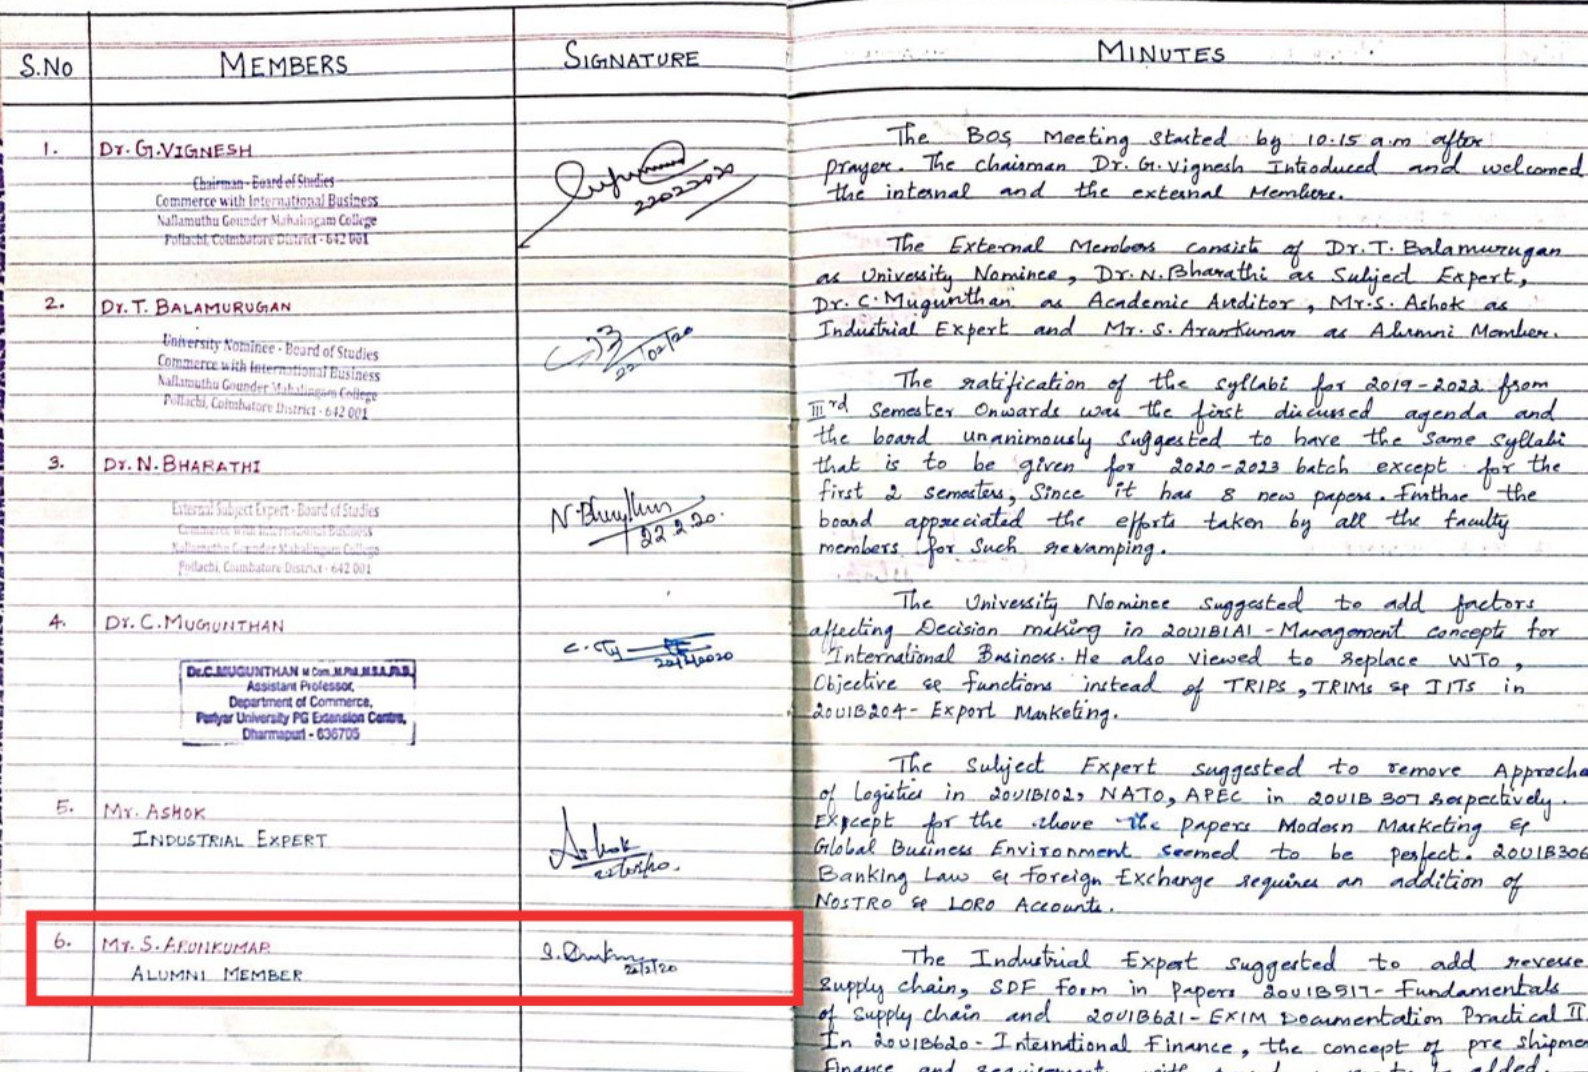 S.No
MEMBERS
SIGNATURE
1.
Dr. G. VIGNESH
Chairman - Board of Studies
Commerce with International Business
Nallamuthu Gounder Mahalingam College
Pollachi, Coimbatore District - 642 001
22022020
2.
Dr. T. BALAMURUGAN
University Nominee - Board of Studies
Commerce with International Business
Nallamuthu Gounder Mahalingam College
Pollachi, Coimbatore District - 642 001
22/02/20
3.
Dr. N. BHARATHI
External Subject Expert - Board of Studies
Commerce with International Business
Nallamuthu Gounder Mahalingam College
Pollachi, Coimbatore District - 642 001
22.2.20.
4.
Dr. C. MUGUNTHAN
Dr.C.MUGUNTHAN M.Com.,M.Phil.,M.B.A.,Ph.D.,
Assistant Professor,
Department of Commerce,
Periyar University PG Extension Centre,
Dharmapuri - 636705
5.
Mr. ASHOK
INDUSTRIAL EXPERT
Ashok
6.
Mr. S. ARUNKUMAR
ALUMNI MEMBER
22/2/20
MINUTES
The BOS, Meeting started by 10:15 a.m after
prayer. The Chairman Dr. G. Vignesh Introduced and welcomed
the internal and the external Members.
The External Members consists of Dr. T. Balamurugan
as University Nominee, Dr. N. Bharathi as Subject Expert,
Dr. C. Mugunthan as Academic Auditor, Mr. S. Ashok as
Industrial Expert and Mr. S. Arunkumar as Alumni Member.
The ratification of the syllabi for 2019-2022 from
IIIrd Semester Onwards was the first discussed agenda and
the board unanimously suggested to have the same syllabi
that is to be given for 2020-2023 batch except for the
first 2 semesters, Since it has 8 new papers. the
board appreciated the efforts taken by all the faculty
members for such revamping.
The University Nominee suggested to add factors
affecting Decision making in 20UIB1A1 - Management concepts for
International Business. He also viewed to replace WTO,
Objective & functions instead of TRIPS, TRIMs & IITs in
20UIB204 - Export Marketing.
The Subject Expert suggested to remove Approcha
of Logistics in 20UIB102, NATO, APEC in 20UIB 307 respectively.
Except for the above the papers Modern Marketing &
Global Business Environment seemed to be perfect. 20UIB306
Banking Law & Foreign Exchange requires an addition of
NOSTRO & LORO Accounts.
The Industrial Expert suggested to add reverse
supply chain, SDF Form in papers 20UIB517 - Fundamentals
of supply chain and 20UIB621 - EXIM Documentation Practical II.
In 20UIB620 - International Finance, the concept of pre shipme
Finance and added.